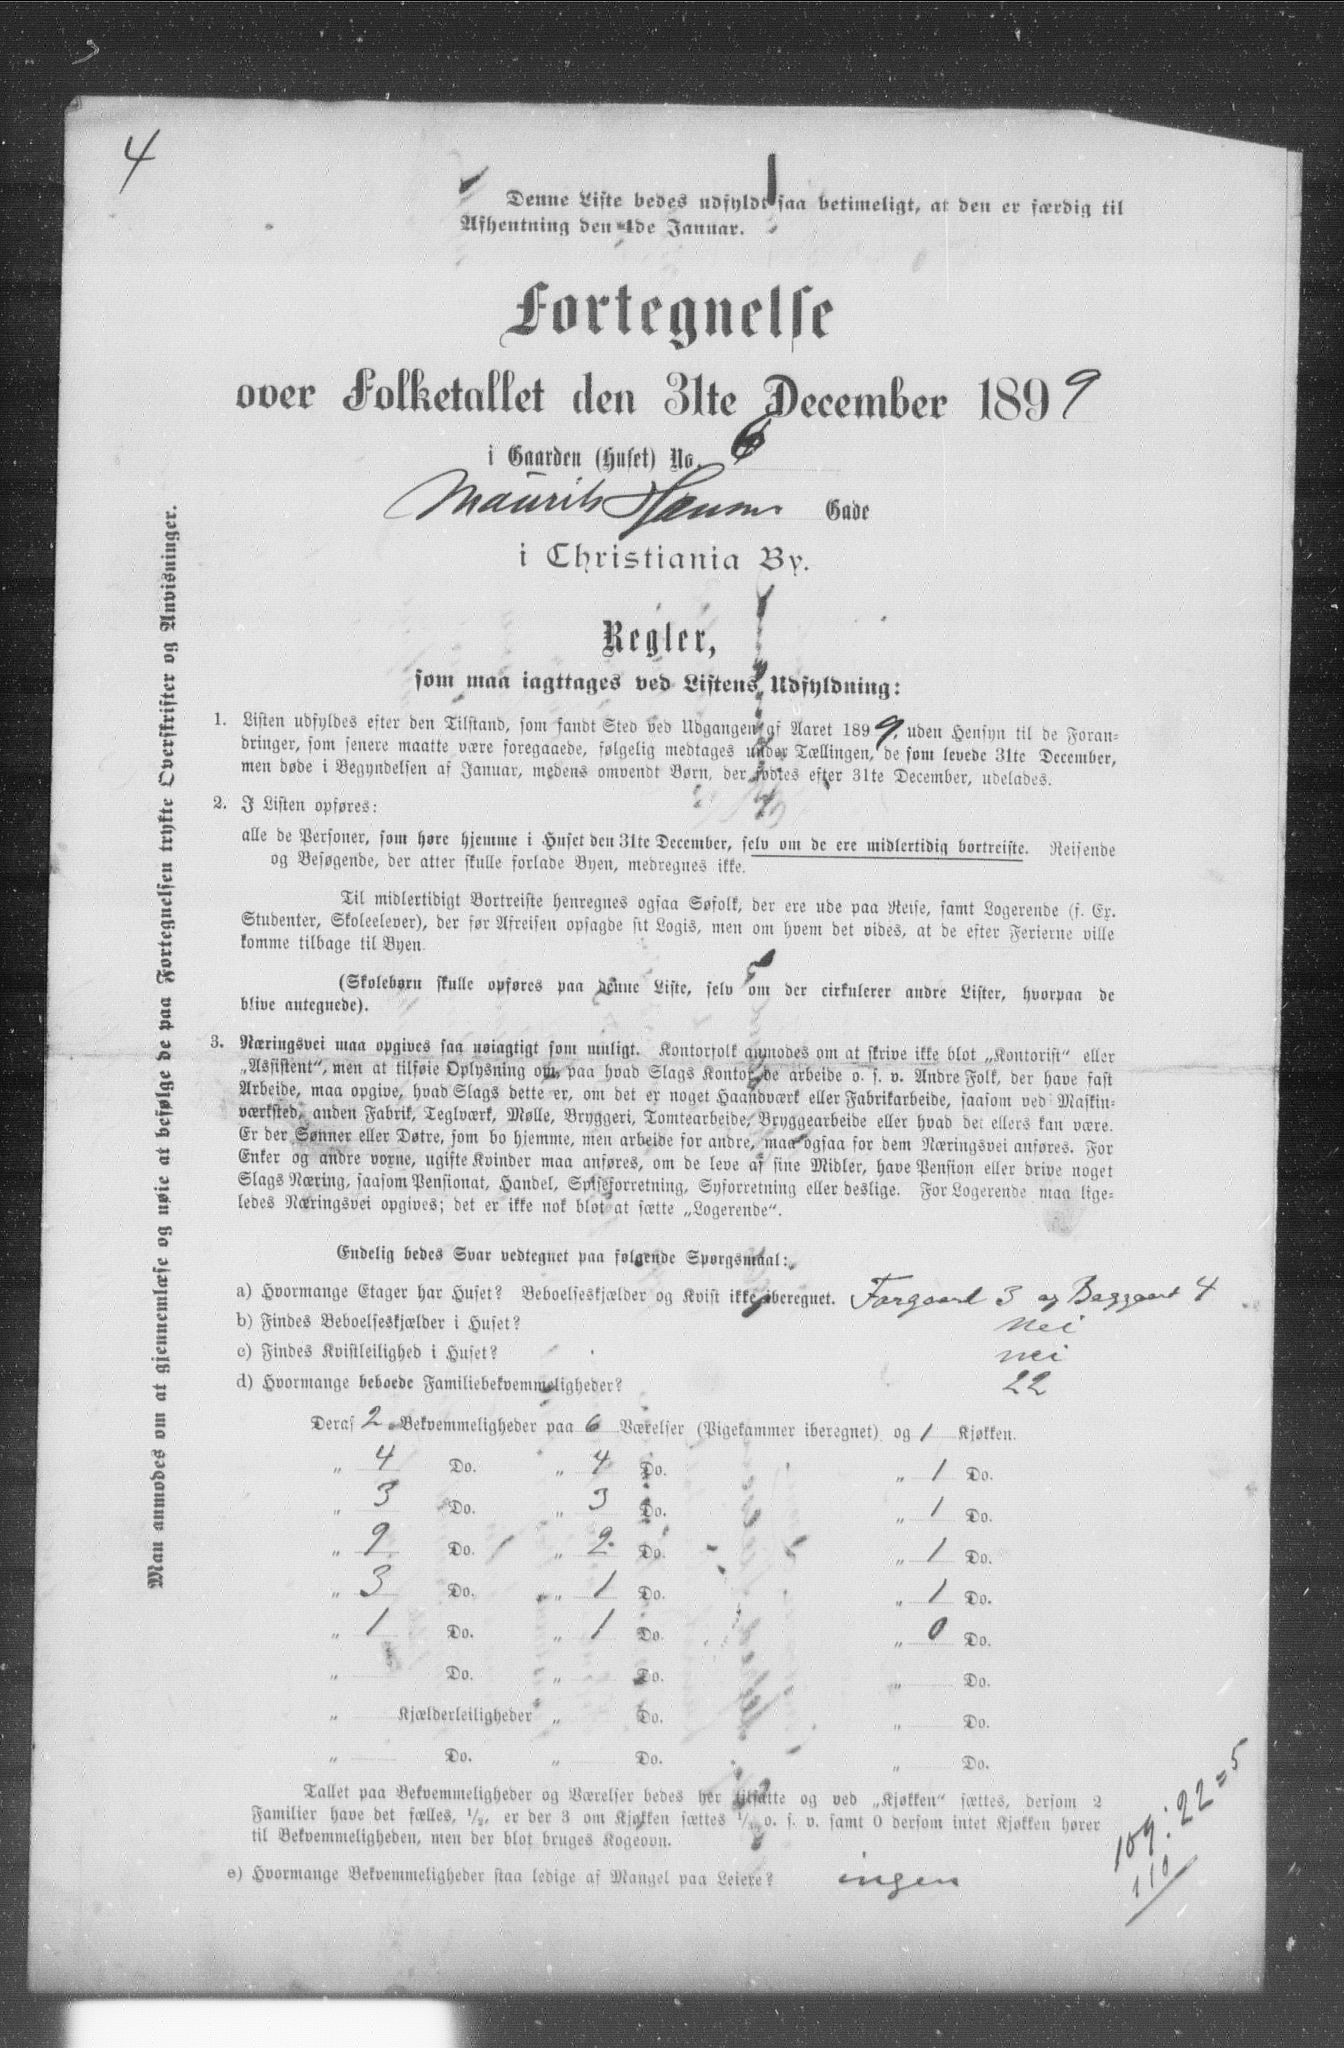 4
Denne Liste bedes udfyldt saa betimeligt, at den er færdig til
Afhentning den 4de Januar.
Fortegnelse
over Folketallet den 31te December 1899
i Gaarden (Huset) No. 6
Maurits Hansens Gade
i Christiania By.
Regler,
som maa iagttages ved Listens Udfyldning:
1. Listen udfyldes efter den Tilstand, som fandt Sted ved Udgangen af Aaret 1899, uden Hensyn til de Foran-
dringer, som senere maatte være foregaaede, følgelig medtages under Tællingen, de som levede 31te December,
men døde i Begyndelsen af Januar, medens omvendt Børn, der fødtes efter 31te December, udelades.
2. I Listen opføres:
alle de Personer, som høre hjemme i Huset den 31te December, selv om de ere midlertidig bortreiste. Reisende
og Besøgende, der atter skulle forlade Byen, medregnes ikke.
Til midlertidigt Bortreiste henregnes ogsaa Søfolk, der ere ude paa Reise, samt Logerende (f. Ex.
Studenter, Skoleelever), der før Afreisen opsagde sit Logis, men om hvem det vides, at de efter Ferierne ville
komme tilbage til Byen.
(Skolebørn skulle opføres paa denne Liste, selv om der cirkulerer andre Lister, hvorpaa de
blive antegnede).
3. Næringsvei maa opgives saa nøiagtigt som muligt. Kontorfolk anmodes om at skrive ikke blot „Kontorist“ eller
„Assistent“, men at tilføie Oplysning om, paa hvad Slags Kontor de arbeide o. s. v. Andre Folk, der have fast
Arbeide, maa opgive, hvad Slags dette er, om det er noget Haandværk eller Fabrikarbeide, saasom ved Maskin-
værksted, anden Fabrik, Teglværk, Mølle, Bryggeri, Tomtearbeide, Bryggearbeide eller hvad det ellers kan være.
Er der Sønner eller Døtre, som bo hjemme, men arbeide for andre, maa ogsaa for dem Næringsvei anføres. For
Enker og andre voxne, ugifte Kvinder maa anføres, om de leve af sine Midler, have Pension eller drive noget
Slags Næring, saasom Pensionat, Handel, Spiseforretning, Syforretning eller deslige. For Logerende maa lige-
ledes Næringsvei opgives; det er ikke nok blot at sætte „Logerende“.
Endelig bedes Svar vedtegnet paa følgende Spørgsmaal:
a) Hvormange Etager har Huset? Beboelseskjælder og Kvist ikke iberegnet. Forgaard 3 og Baggaard 4
b) Findes Beboelseskjælder i Huset? Nei
c) Findes Kvistleilighed i Huset? nei
d) Hvormange beboede Familiebekvemmeligheder? 22
Deraf 2 Bekvemmeligheder paa 6 Værelser (Pigekammer iberegnet) og 1 Kjøkken.
„ 4 Do. „ 4 Do. „ 1 Do.
„ 3 Do. „ 3 Do. „ 1 Do.
„ 9 Do. „ 2 Do. „ 1 Do.
„ 3 Do. „ 1 Do. „ 1 Do.
„ 1 Do. „ 1 Do. „ 0 Do.
„ Do. „ Do. „ Do.
„ Kjælderleiligheder „ Do. „ Do.
„ Do. „ Do. „ Do.
Tallet paa Bekvemmeligheder og Værelser bedes her tilsatte og ved „Kjøkken“ sættes, dersom 2
Familier have det fælles, 1/2, er der 3 om Kjøkken sættes 1/3 o. s. v. samt 0 dersom intet Kjøkken hører
til Bekvemmeligheden, men der blot bruges Kogeovn.
e) Hvormange Bekvemmeligheder staa ledige af Mangel paa Leiere? ingen
109:22=5
110
Man anmodes om at gjennemlæse og nøie at befølge de paa Fortegnelsen trykte Overskrifter og Anvisninger.